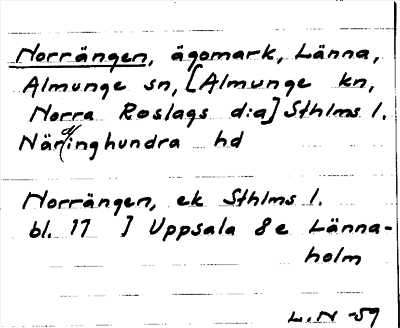 Norrängen, ägomark, Länna,
Almunge sn, [Almunge kn,
Norra Roslags d:a] Sthlms l.
Närdinghundra hd
Norrängen, ek Sthlms l.
bl. 17 ] Uppsala 8e Länna-
holm
L.N -59